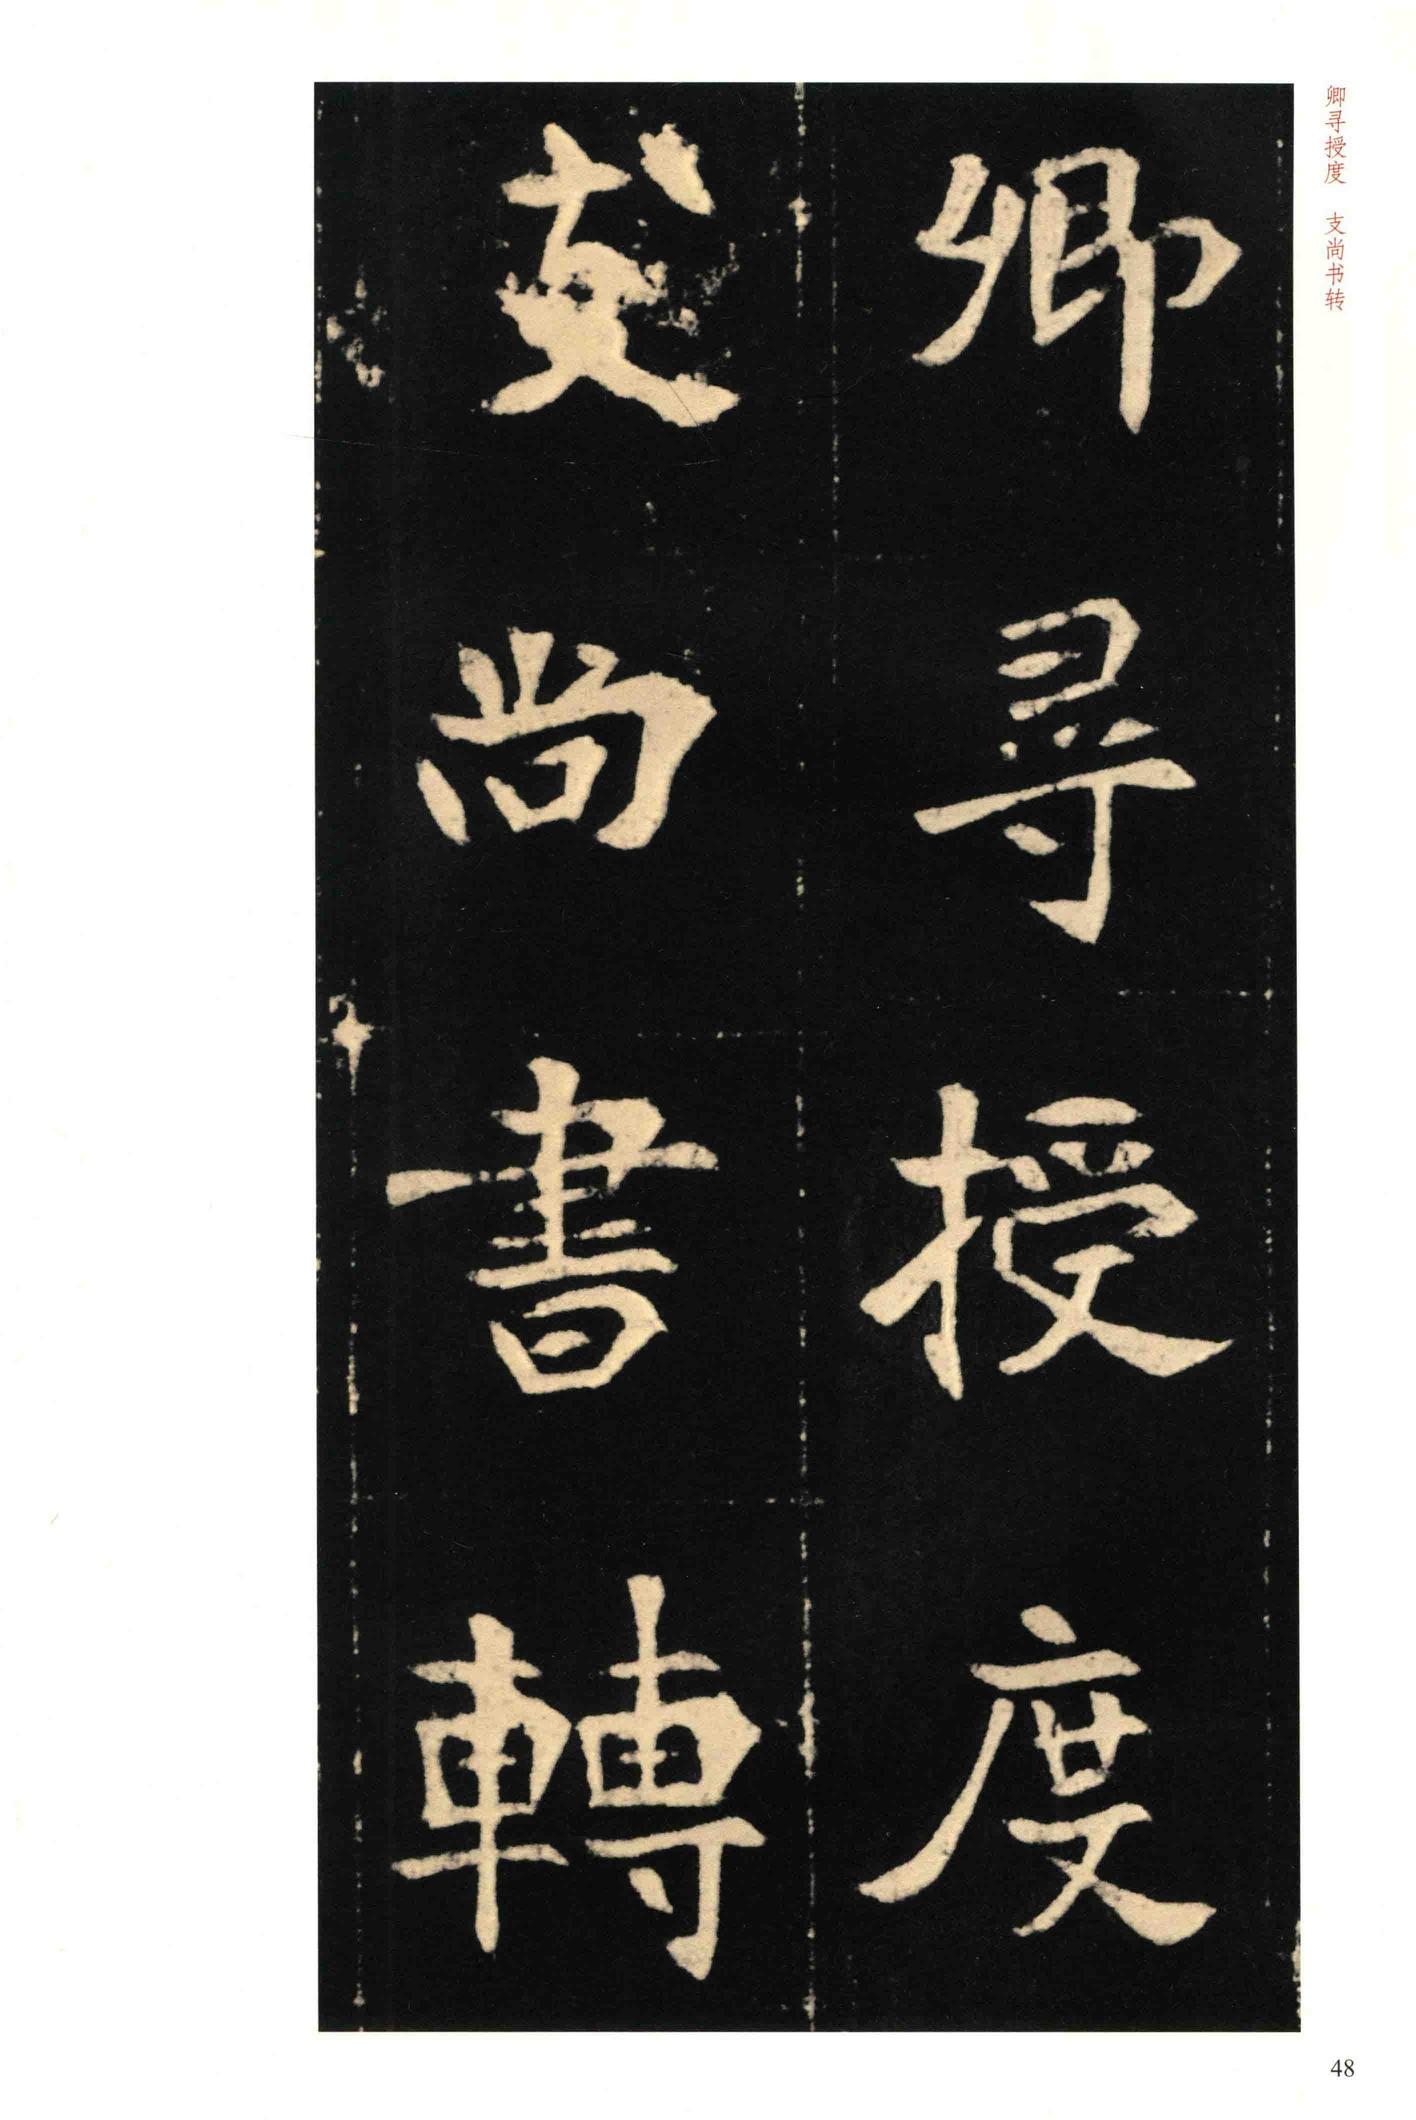 卿尋授度
支尚書轉
卿寻授度 支尚书转
48